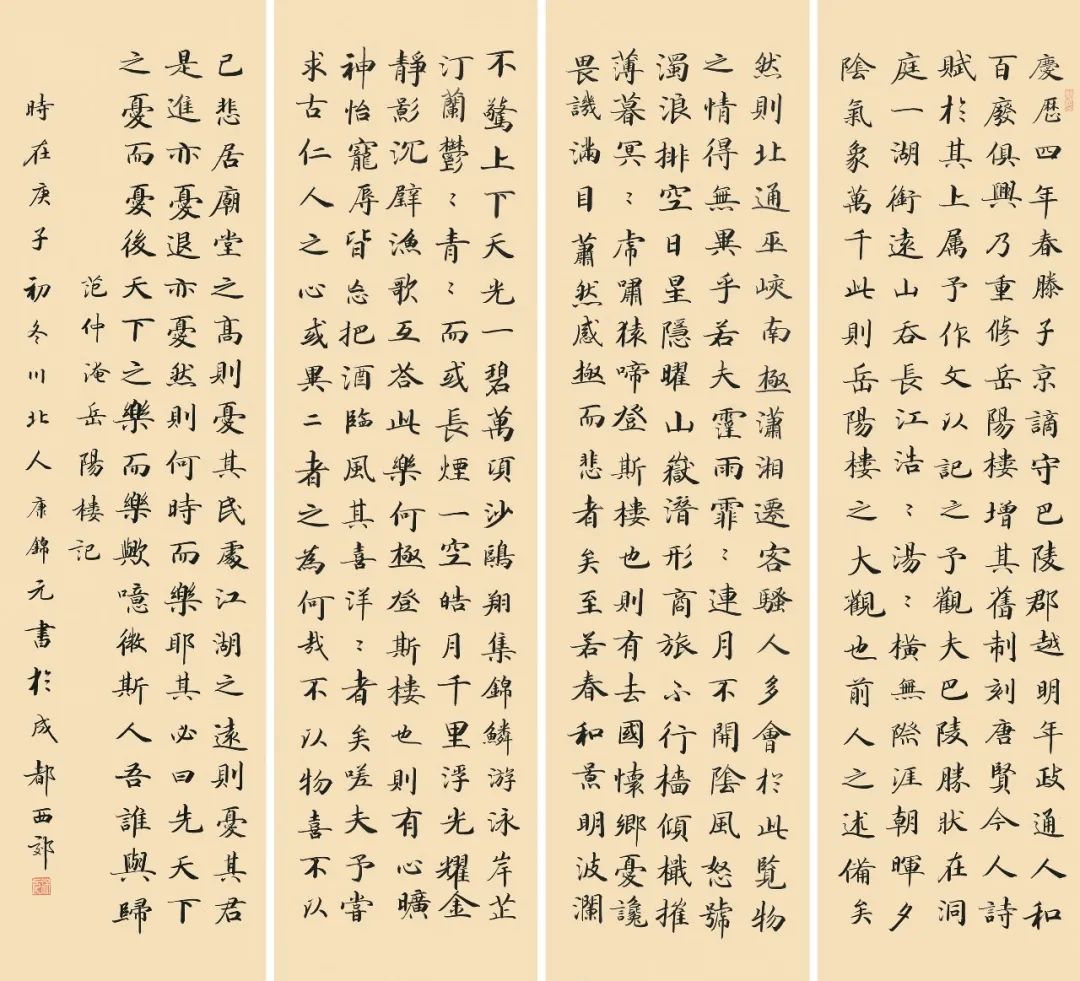 慶歷四年春滕子京謫守巴陵郡越明年政通人和
百廢俱興乃重修岳陽樓增其舊制刻唐賢今人詩
賦於其上属予作文以記之予觀夫巴陵勝狀在洞
庭一湖銜遠山吞長江浩〻湯〻橫無際涯朝暉夕
陰氣象萬千此則岳陽樓之大觀也前人之述備矣
然則北通巫峽南極瀟湘遷客騷人多會於此覽物
之情得無異乎若夫霪雨霏〻連月不開陰風怒號
濁浪排空日星隱曜山嶽潛形商旅不行檣傾檝摧
薄暮冥〻虎嘯猿啼登斯樓也則有去國懷鄉憂讒
畏譏滿目蕭然感極而悲者矣至若春和景明波瀾
不驚上下天光一碧萬頃沙鷗翔集錦鱗游泳岸芷
汀蘭鬱〻青〻而或長煙一空皓月千里浮光耀金
靜影沉璧漁歌互答此樂何極登斯樓也則有心曠
神怡寵辱皆忘把酒臨風其喜洋〻者矣嗟夫予嘗
求古仁人之心或異二者之為何哉不以物喜不以
己悲居廟堂之高則憂其民處江湖之遠則憂其君
是進亦憂退亦憂然則何時而樂耶其必曰先天下
之憂而憂後天下之樂而樂歟噫微斯人吾誰與歸
范仲淹岳陽樓記
時在庚子初冬川北人康錦元書於成都西郊